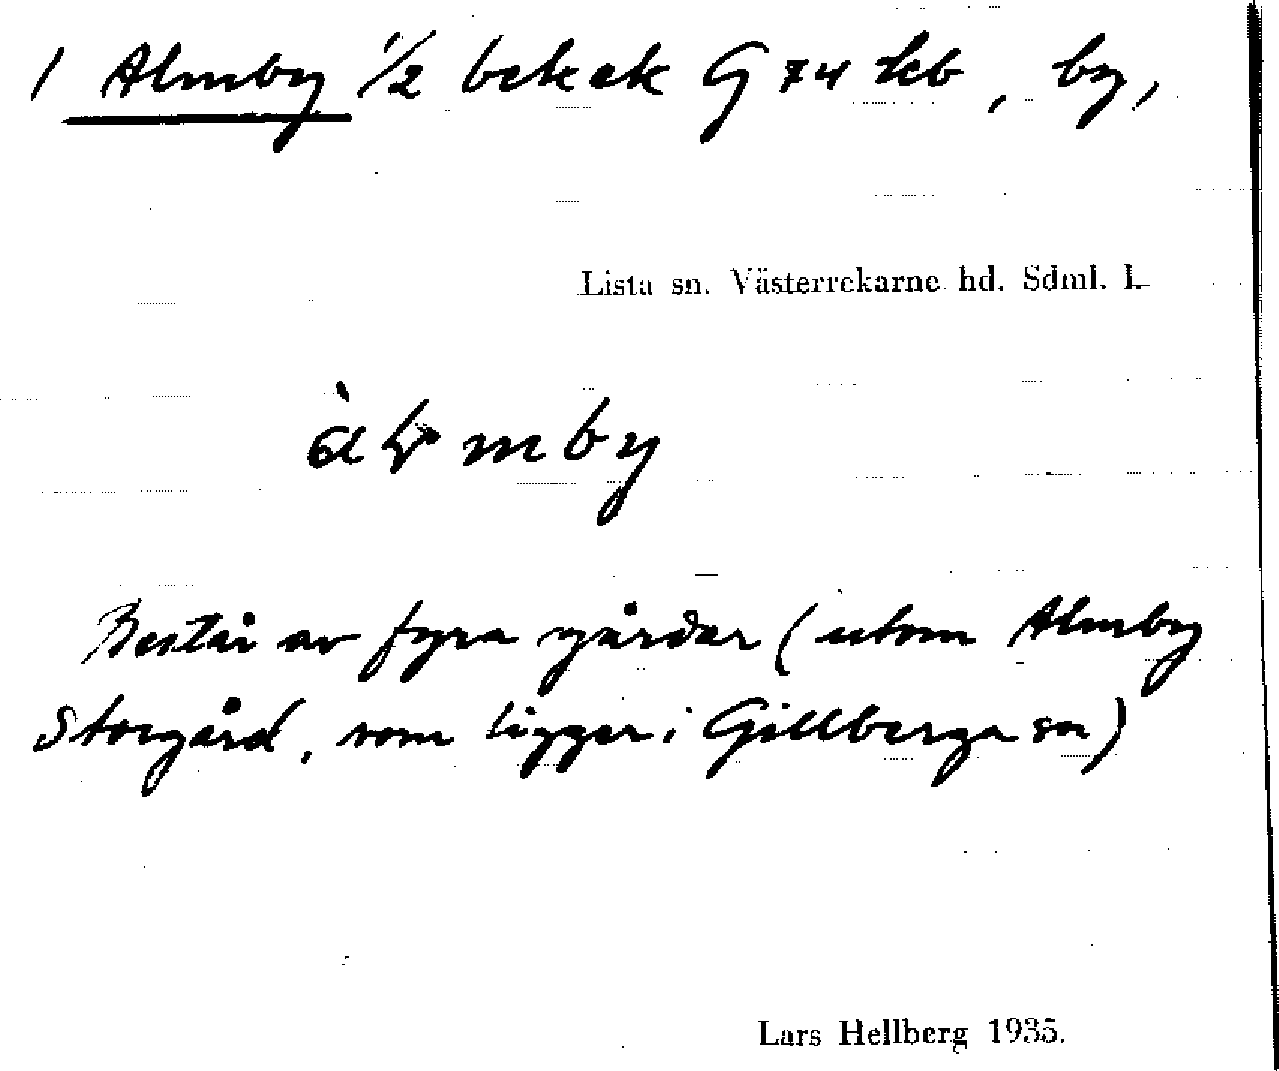 1 Almby 1/2 bek ek G 74 kb, by,
Lista sn. Västerrekarne hd. Sdml. L
àlmby
Består av fyra gårdar (utom Almby
Storgård, som ligger i Gillberga sn)
Lars Hellberg 1935.